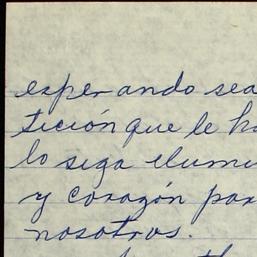 esperando sea
tición que le h
lo siga ilumi
y corazón par
nosotros.